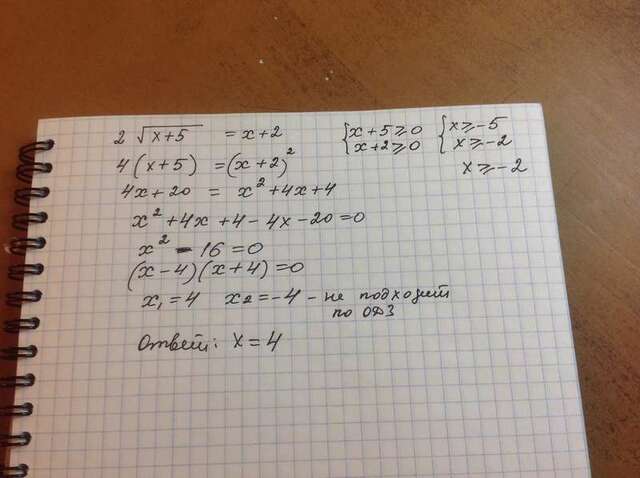 2 √(x+5) = x+2 {x+5⩾0 {x⩾-5
4(x+5) = (x+2)² x+2⩾0 x⩾-2
4x+20 = x²+4x+4 x⩾-2
x²+4x+4-4x-20=0
x²-16=0
(x-4)(x+4)=0
x₁=4 x₂=-4 - не подходит
по ОДЗ
Ответ: x=4